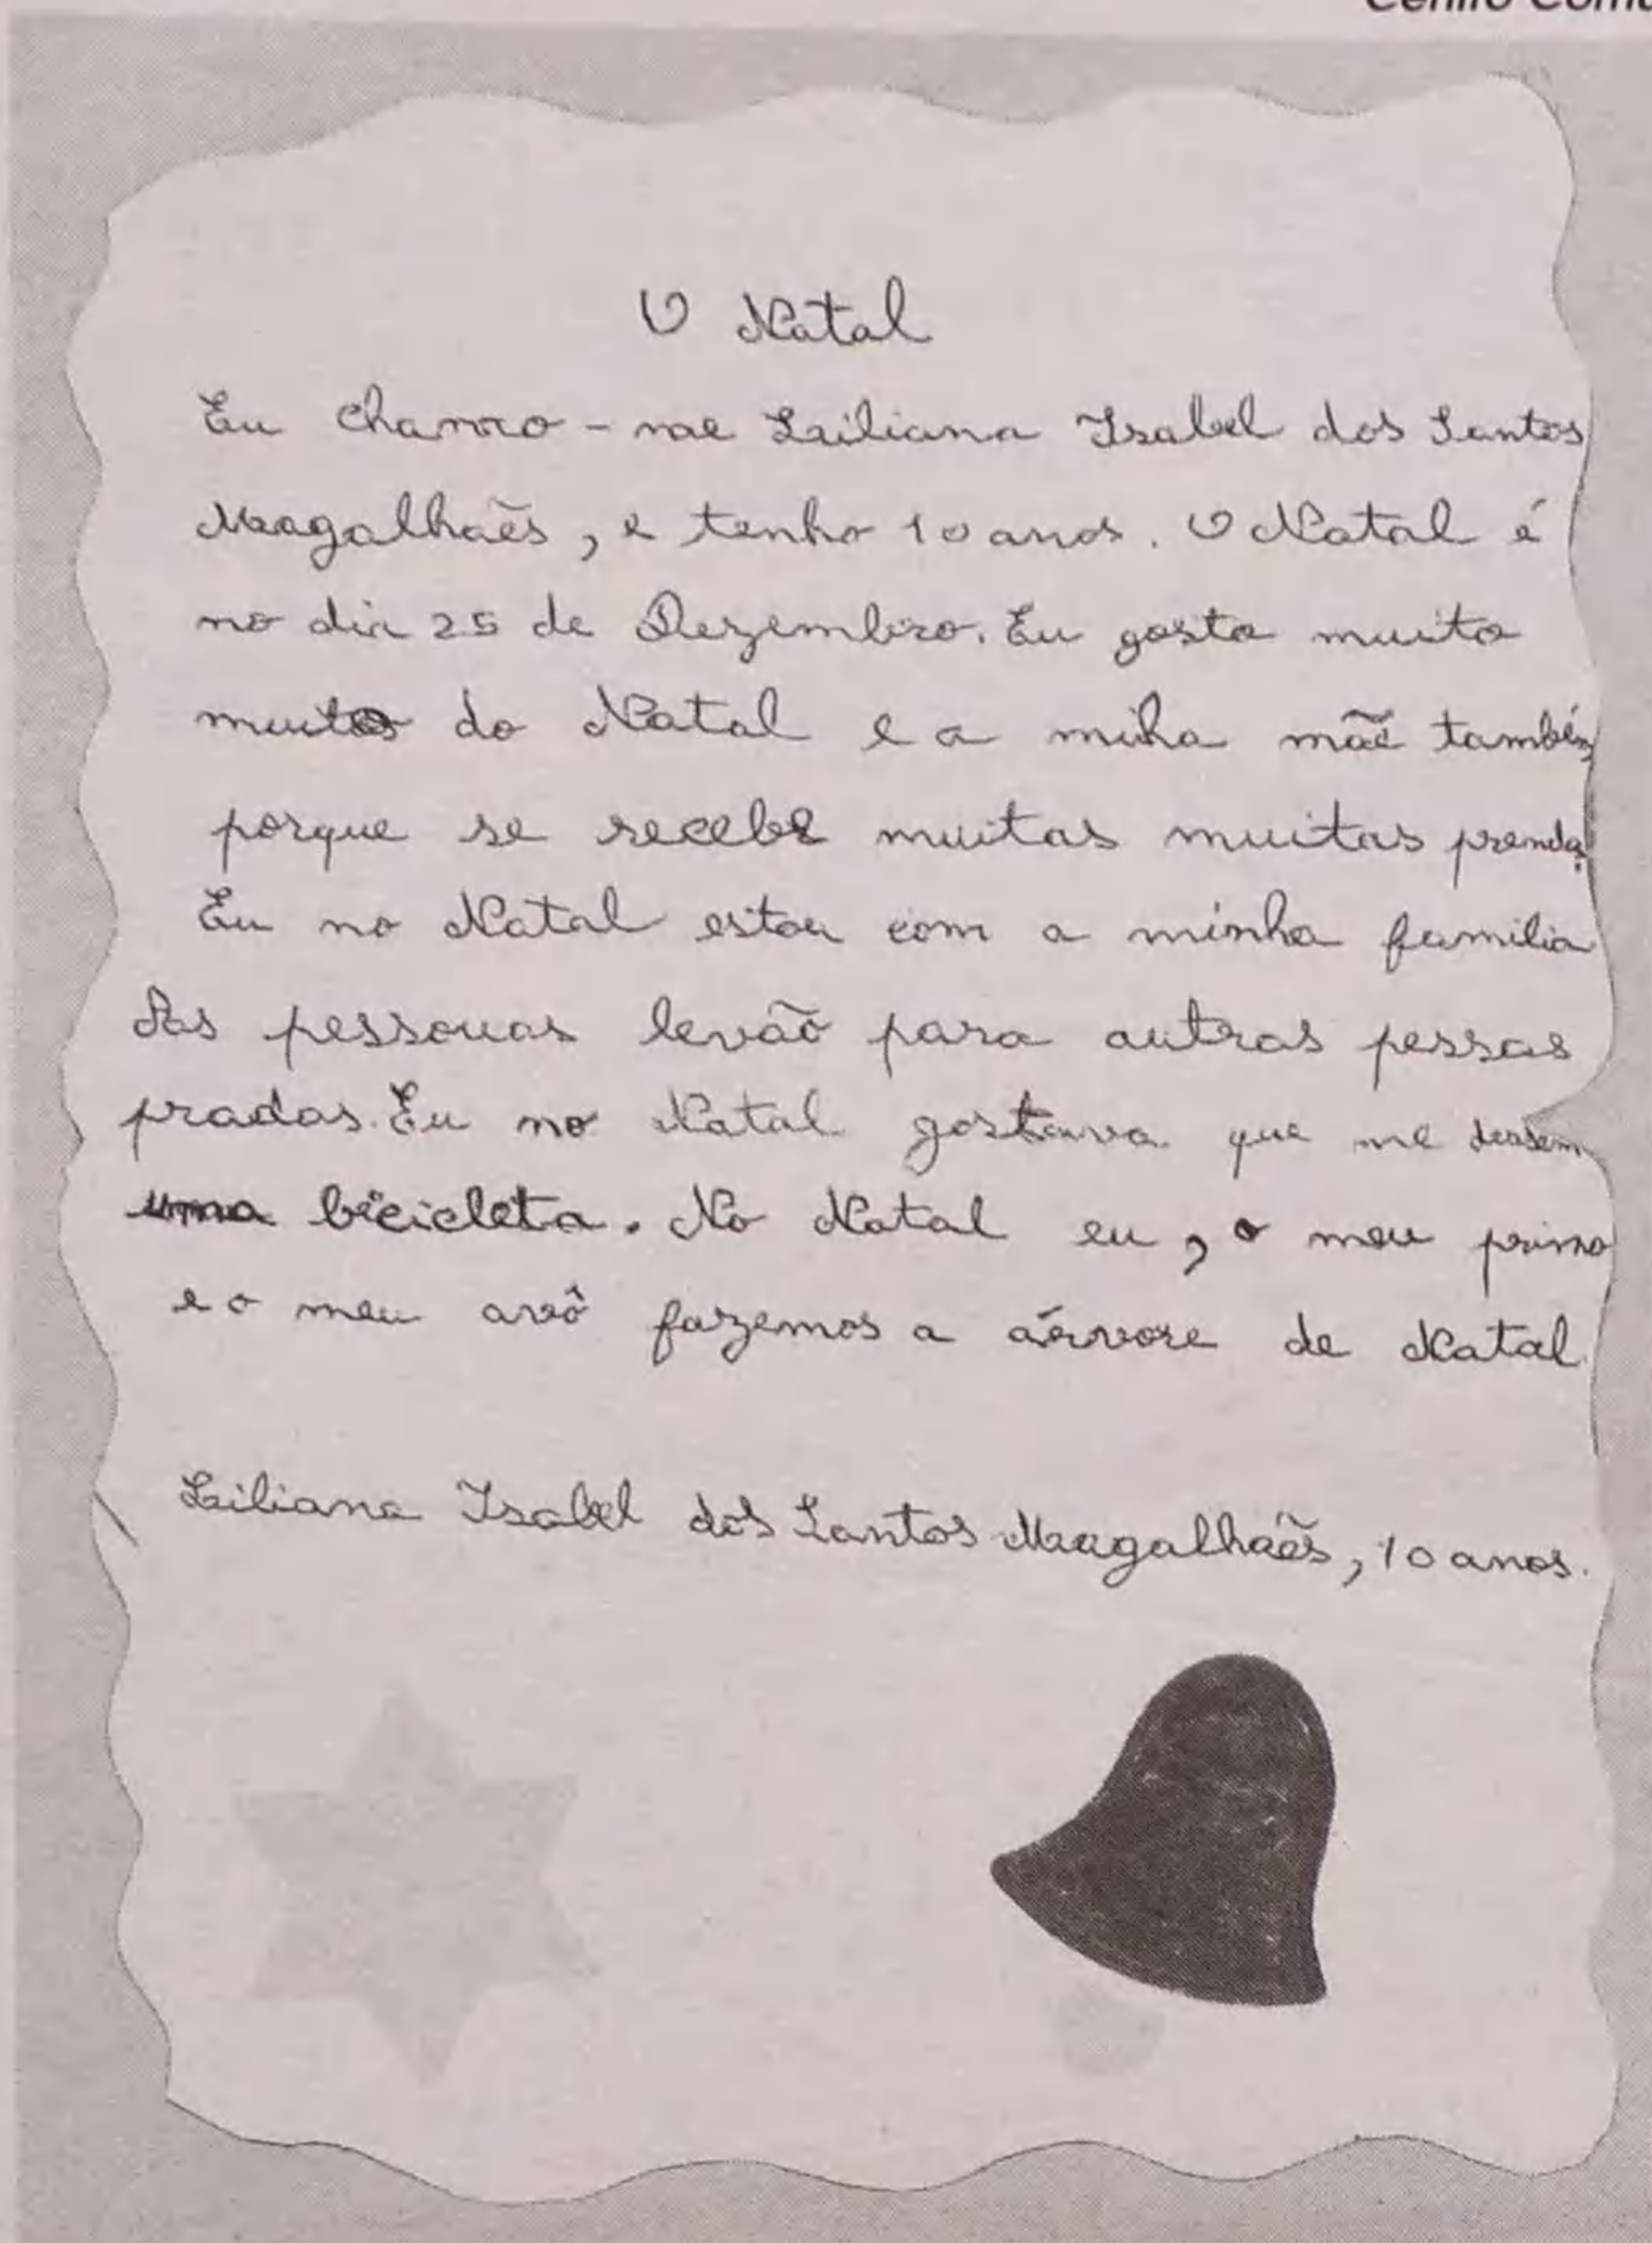 Centro Comu
O Natal
Eu chamo-me Liliana Isabel dos Santos
Magalhães, e tenho 10 anos. O Natal é
no dia 25 de Dezembro. Eu gosto muito
muito do Natal e a miha mãe também
porque se recebe muitas muitas prendas
Eu no Natal estou com a minha familia
As pessouas levão para outras pessas
pradas. Eu no Natal gostava que me dessem
uma bicicleta. No Natal eu, o meu primo
e o meu avô fazemos a árvore de Natal
Liliana Isabel dos Santos Magalhães, 10 anos.